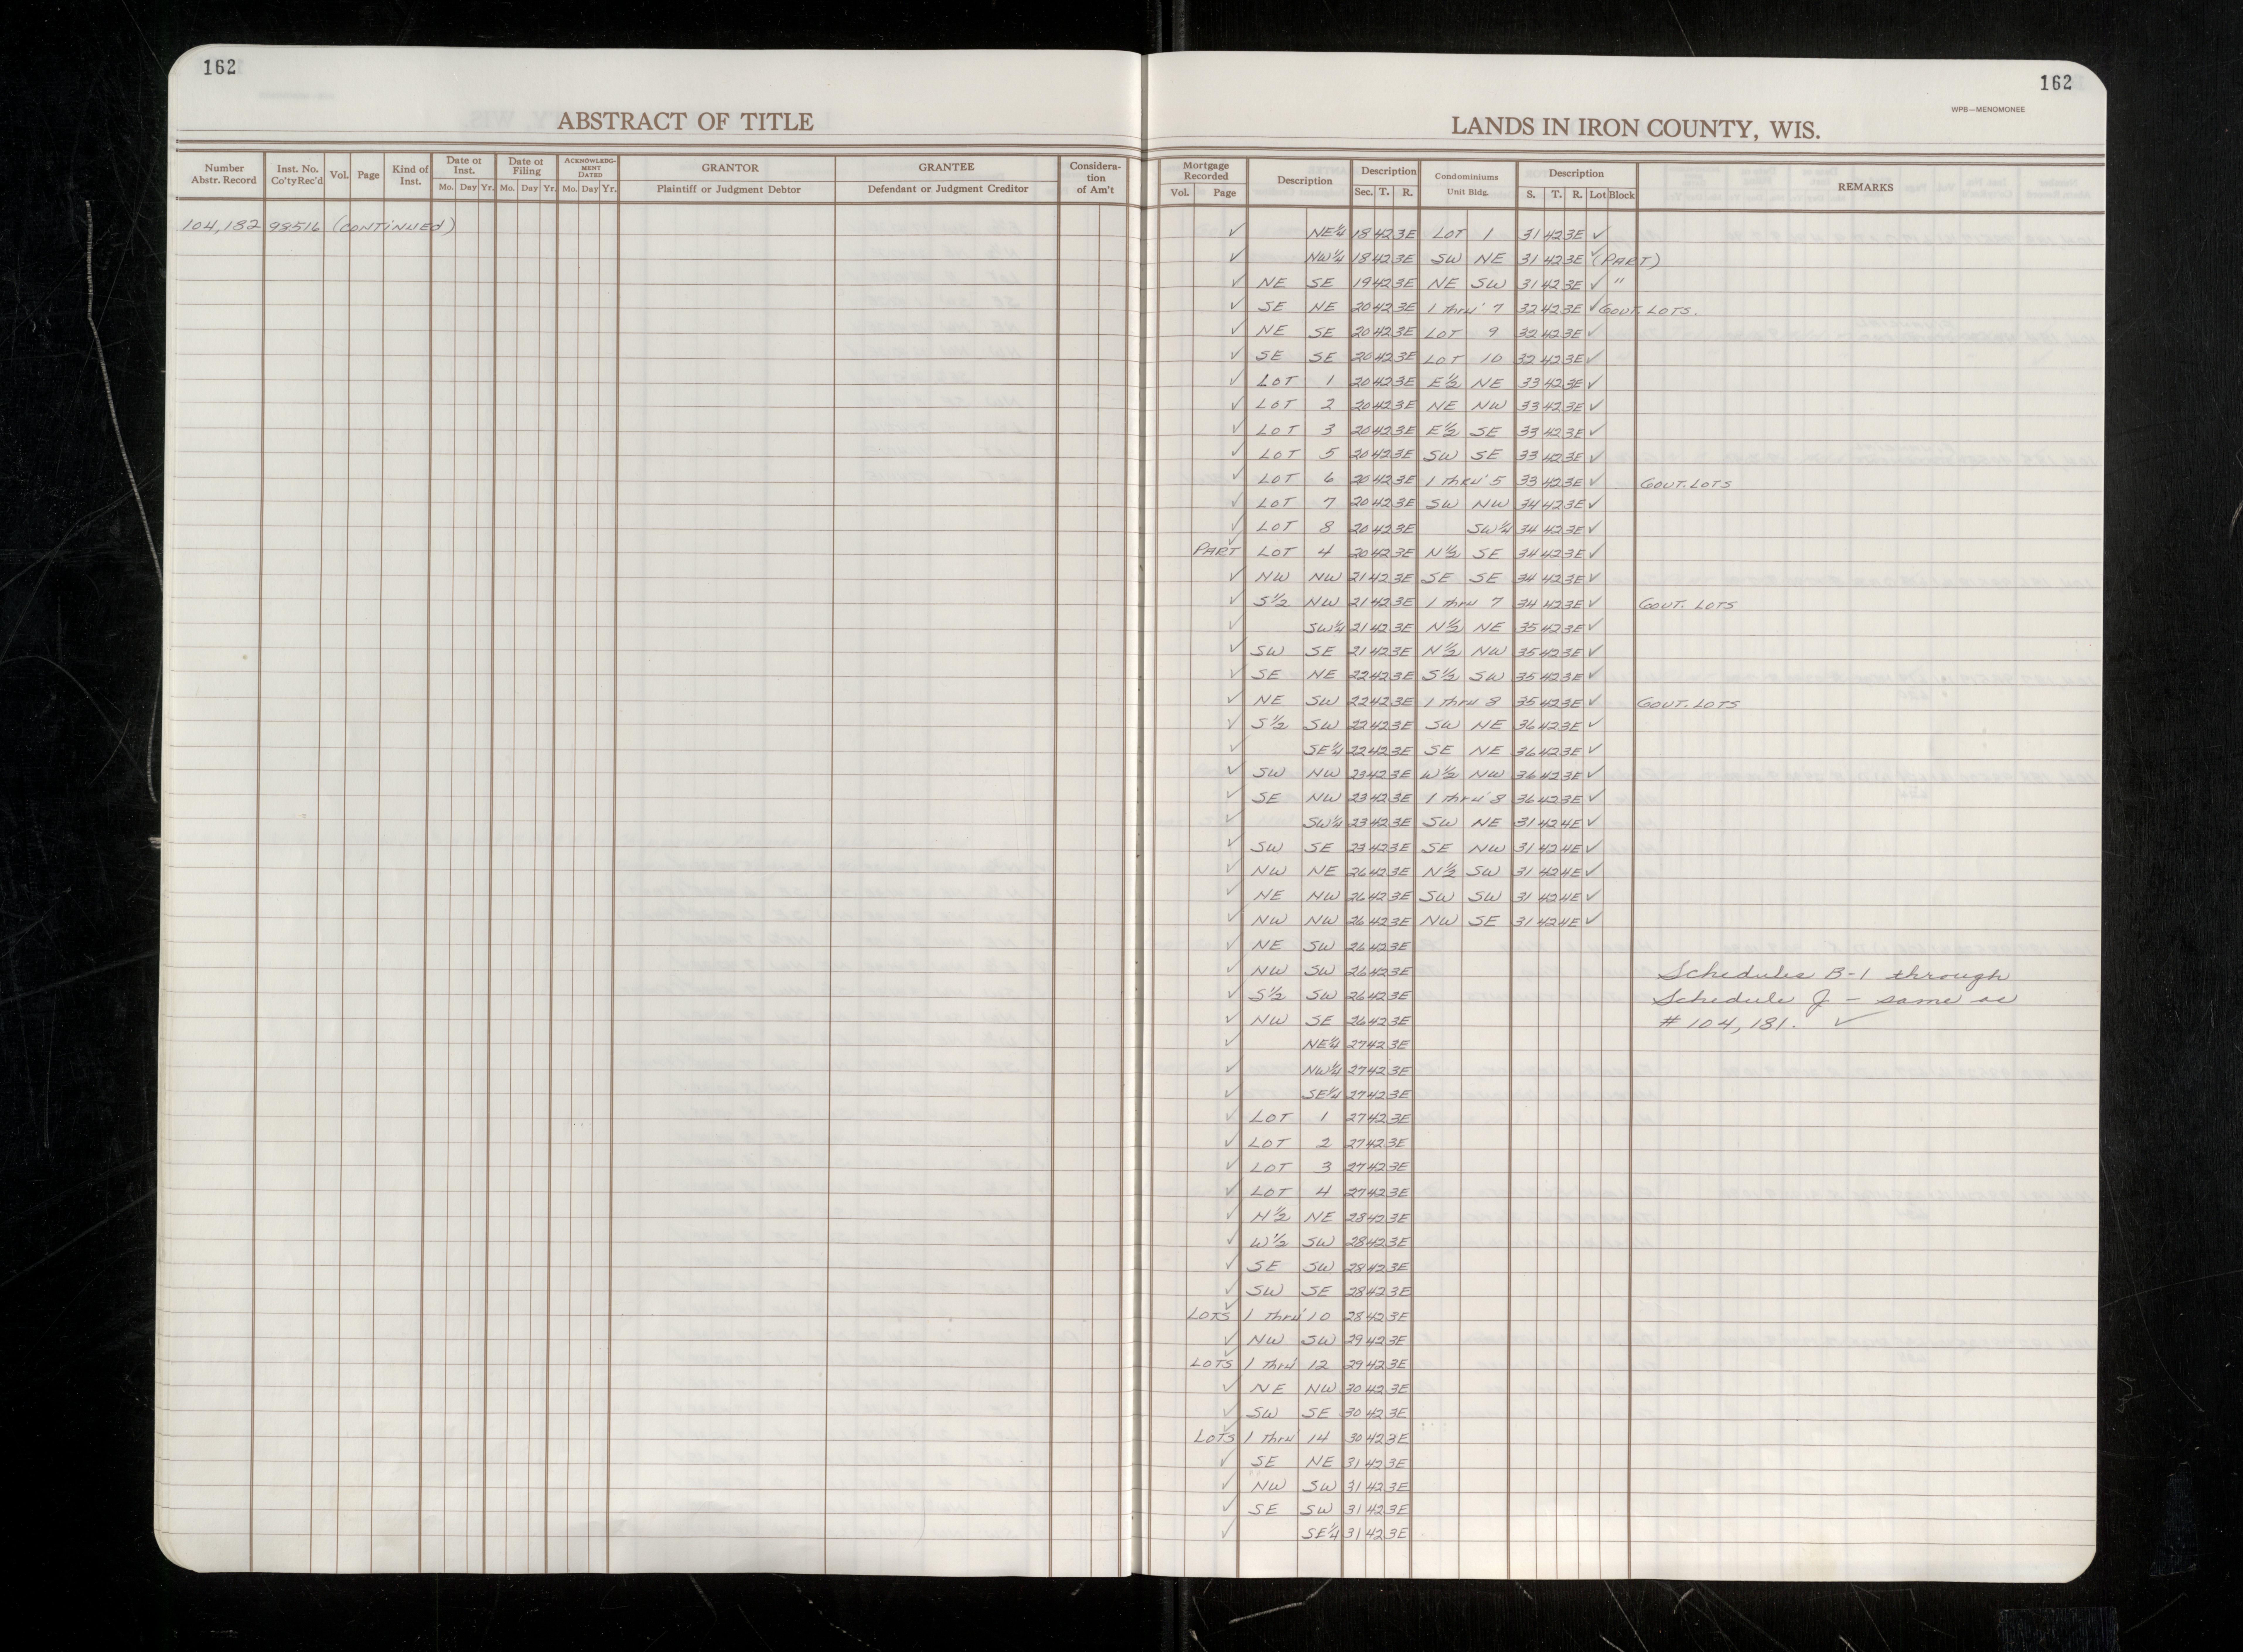 162
ABSTRACT OF TITLE
Number Abstr. Record | Inst. No. Co'ty Rec'd | Vol. | Page | Kind of Inst. | Date of Inst. Mo. Day Yr. | Date of Filing Mo. Day Yr. | ACKNOWLEDGMENT DATED Mo. Day Yr. | GRANTOR Plaintiff or Judgment Debtor | GRANTEE Defendant or Judgment Creditor | Consideration of Am't
104,182 98516 (CONTINUED)
162
WPB—MENOMONEE
LANDS IN IRON COUNTY, WIS.
Mortgage Recorded Vol. Page | Description | Description Sec. T. R. | Condominiums Unit Bldg. | Description S. T. R. Lot Block | REMARKS
✓ NE¼ 18 42 3E LOT 1 31 42 3E ✓
✓ NW¼ 18 42 3E SW NE 31 42 3E ✓ (PART)
✓ NE SE 19 42 3E NE SW 31 42 3E ✓ "
✓ SE NE 20 42 3E 1 thru' 7 32 42 3E ✓ GOVT. LOTS.
✓ NE SE 20 42 3E LOT 9 32 42 3E ✓
✓ SE SE 20 42 3E LOT 10 32 42 3E ✓
✓ LOT 1 20 42 3E E½ NE 33 42 3E ✓
✓ LOT 2 20 42 3E NE NW 33 42 3E ✓
✓ LOT 3 20 42 3E E½ SE 33 42 3E ✓
✓ LOT 5 20 42 3E SW SE 33 42 3E ✓
✓ LOT 6 20 42 3E 1 thru' 5 33 42 3E ✓ GOVT. LOTS
✓ LOT 7 20 42 3E SW NW 34 42 3E ✓
✓ LOT 8 20 42 3E SW¼ 34 42 3E ✓
PART ✓ LOT 4 20 42 3E N½ SE 34 42 3E ✓
✓ NW NW 21 42 3E SE SE 34 42 3E ✓
✓ S½ NW 21 42 3E 1 thru 7 34 42 3E ✓ GOVT. LOTS
✓ SW¼ 21 42 3E N½ NE 35 42 3E ✓
✓ SW SE 21 42 3E N½ NW 35 42 3E ✓
✓ SE NE 22 42 3E S½ SW 35 42 3E ✓
✓ NE SW 22 42 3E 1 thru 8 35 42 3E ✓ GOVT. LOTS
✓ S½ SW 22 42 3E SW NE 36 42 3E ✓
✓ SE¼ 22 42 3E SE NE 36 42 3E ✓
✓ SW NW 23 42 3E W½ NW 36 42 3E ✓
✓ SE NW 23 42 3E 1 thru' 8 36 42 3E ✓
✓ SW¼ 23 42 3E SW NE 31 42 4E ✓
✓ SW SE 23 42 3E SE NW 31 42 4E ✓
✓ NW NE 26 42 3E N½ SW 31 42 4E ✓
✓ NE NW 26 42 3E SW SW 31 42 4E ✓
✓ NW NW 26 42 3E NW SE 31 42 4E ✓
✓ NE SW 26 42 3E
✓ NW SW 26 42 3E Schedules B-1 through
✓ S½ SW 26 42 3E Schedule J - same as
✓ NW SE 26 42 3E # 104,181. ✓
✓ NE¼ 27 42 3E
✓ NW¼ 27 42 3E
✓ SE¼ 27 42 3E
✓ LOT 1 27 42 3E
✓ LOT 2 27 42 3E
✓ LOT 3 27 42 3E
✓ LOT 4 27 42 3E
✓ N½ NE 28 42 3E
✓ W½ SW 28 42 3E
✓ SE SW 28 42 3E
✓ SW SE 28 42 3E
LOTS ✓ 1 thru' 10 28 42 3E
✓ NW SW 29 42 3E
LOTS ✓ 1 thru' 12 29 42 3E
✓ NE NW 30 42 3E
✓ SW SE 30 42 3E
LOTS ✓ 1 thru' 14 30 42 3E
✓ SE NE 31 42 3E
✓ NW SW 31 42 3E
✓ SE SW 31 42 3E
✓ SE¼ 31 42 3E